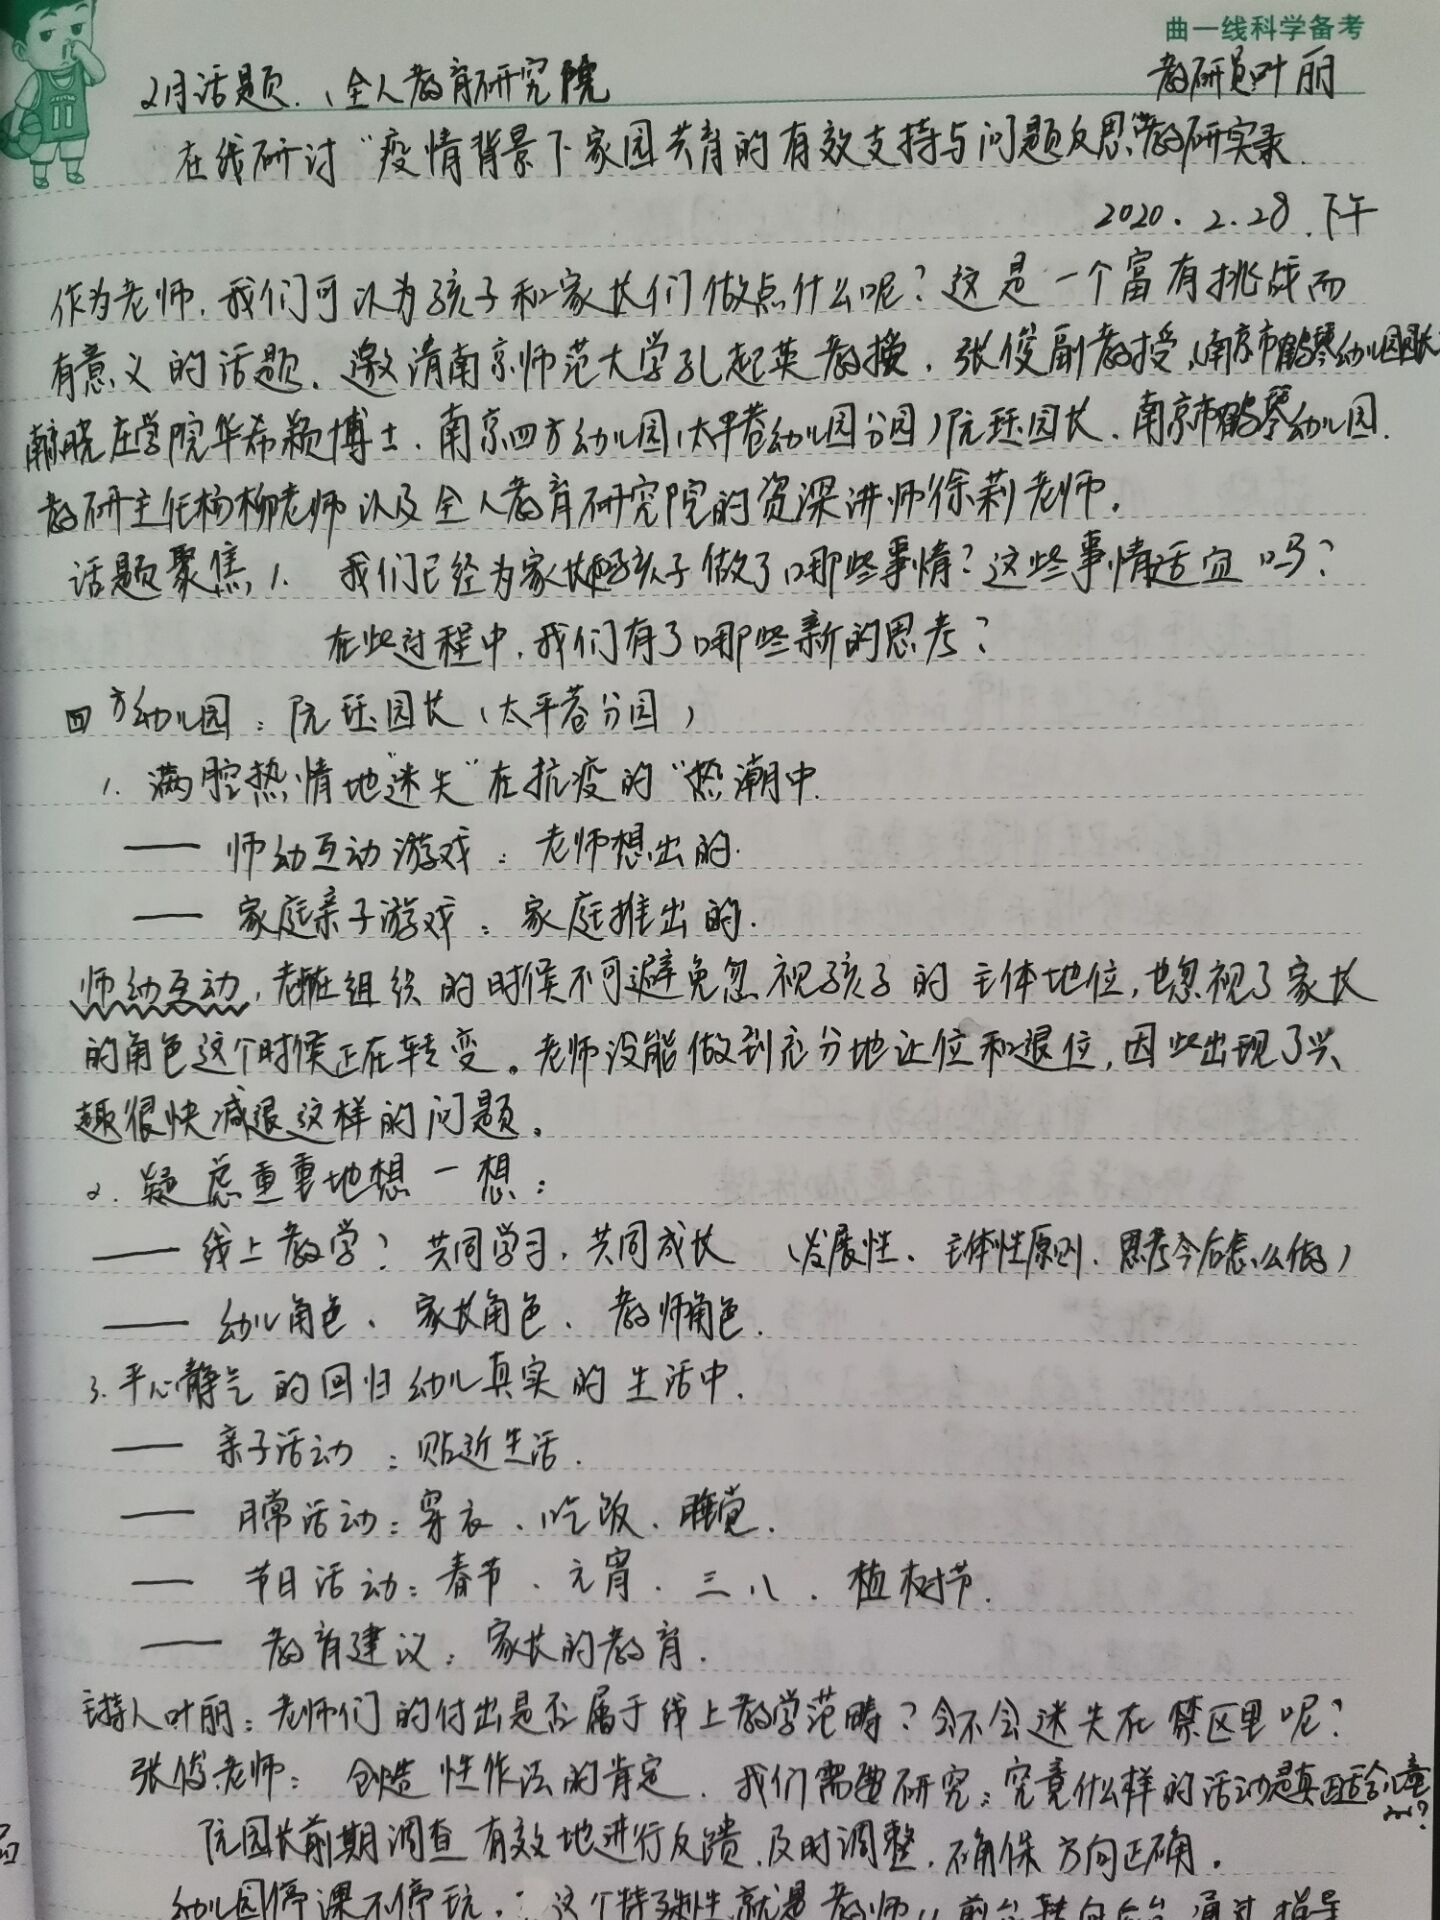 曲一线科学备考
2月话题、（全人教育研究院
教研员叶丽
在线研讨“疫情背景下家园共育的有效支持与问题反思”教研实录.
2020.2.28.下午
作为老师,我们可以为孩子和家长们做点什么呢?这是一个富有挑战而
有意义的话题.邀请南京师范大学孔起英教授.张俊副教授、(南京市鹤琴幼儿园园长
晓庄学院华希颖博士.南京四方幼儿园(太平巷幼儿园分园)阮珏园长.南京市鹤琴幼儿园.
教研主任杨柳老师以及全人教育研究院的资深讲师徐莉老师.
话题聚焦1. 我们已经为家长和孩子做了哪些事情?这些事情适宜吗?
在此过程中,我们有了哪些新的思考?
四方幼儿园:阮珏园长(太平巷分园)
1.满腔热情地“迷失”在抗疫的“热潮中.
—— 师幼互动游戏:老师想出的.
—— 家庭亲子游戏:家庭推出的.
师幼互动,老师在组织的时候不可避免忽视孩子的主体地位,也忽视了家长
的角色这个时候正在转变。老师没能做到充分地让位和退位,因此出现了兴
趣很快减退这样的问题。
2.疑虑重重地想一想:
—— 线上教学?共同学习,共同成长 (发展性、主体性原则、思考今后怎么做)
—— 幼儿角色、家长角色、教师角色.
3.平心静气的回归幼儿真实的生活中.
—— 亲子活动:贴近生活.
—— 日常活动:穿衣、吃饭、睡觉.
—— 节日活动:春节、元宵.三八.植树节.
—— 教育建议:家长的教育.
主持人叶丽:老师们的付出是否属于线上教学范畴?会不会迷失在禁区里呢?
张俊老师: 创造性作法的肯定.我们需要研究:究竟什么样的活动是真正适合儿童
的?
阮园长前期调查有效地进行反馈.及时调整.确保方向正确.
幼儿园停课不停玩.:这个特殊性就是教师从前台转向后台 通过指导